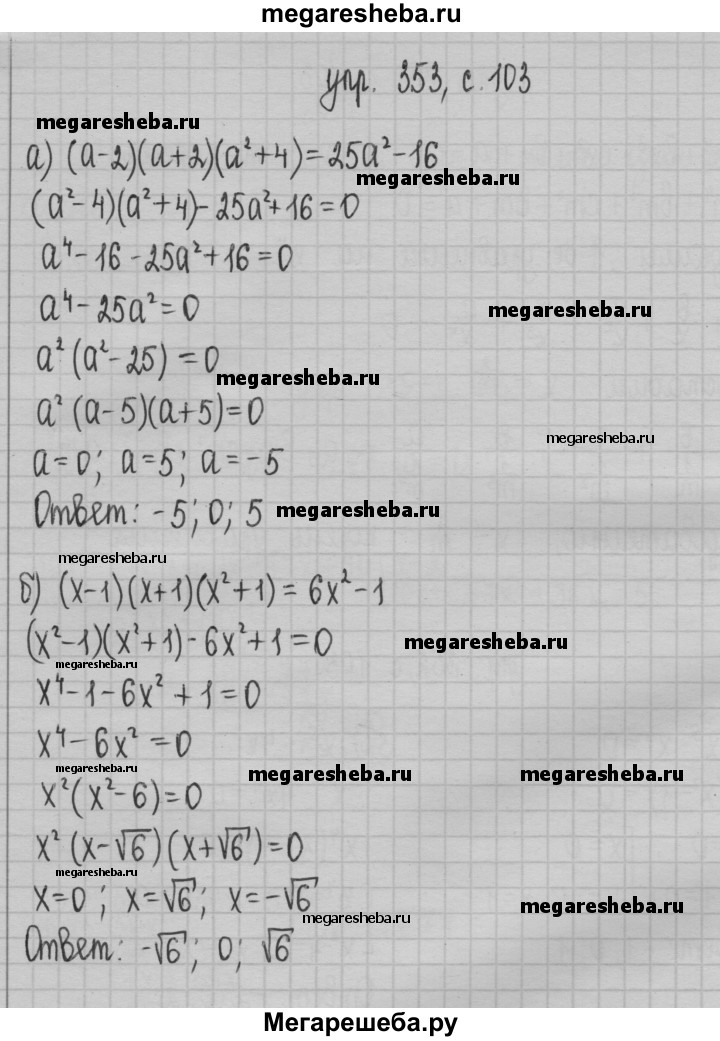 megaresheba.ru
упр. 353, с. 103
megaresheba.ru
а) (a-2)(a+2)(a²+4)=25a²-16
megaresheba.ru
(a²-4)(a²+4)-25a²+16=0
a⁴-16-25a²+16=0
a⁴-25a²=0
megaresheba.ru
a²(a²-25)=0
megaresheba.ru
a²(a-5)(a+5)=0
megaresheba.ru
a=0; a=5; a=-5
Ответ: -5; 0; 5
megaresheba.ru
megaresheba.ru
б) (x-1)(x+1)(x²+1)=6x²-1
(x²-1)(x²+1)-6x²+1=0
megaresheba.ru
megaresheba.ru
x⁴-1-6x²+1=0
x⁴-6x²=0
megaresheba.ru
megaresheba.ru
megaresheba.ru
x²(x²-6)=0
x²(x-√6)(x+√6)=0
megaresheba.ru
x=0; x=√6; x=-√6
megaresheba.ru
megaresheba.ru
Ответ: -√6; 0; √6
Мегарешеба.ру